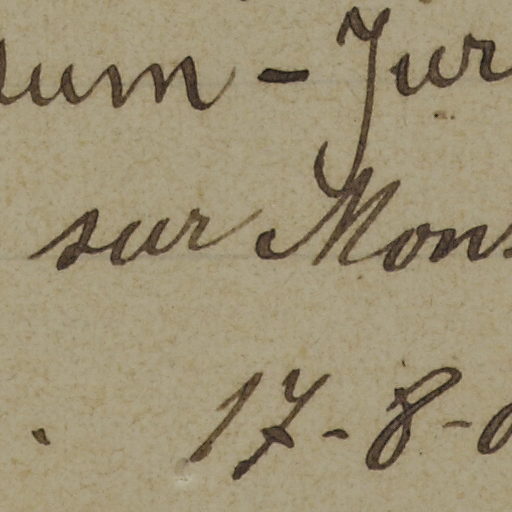 um - Jur
sur Mons
. 17-8-